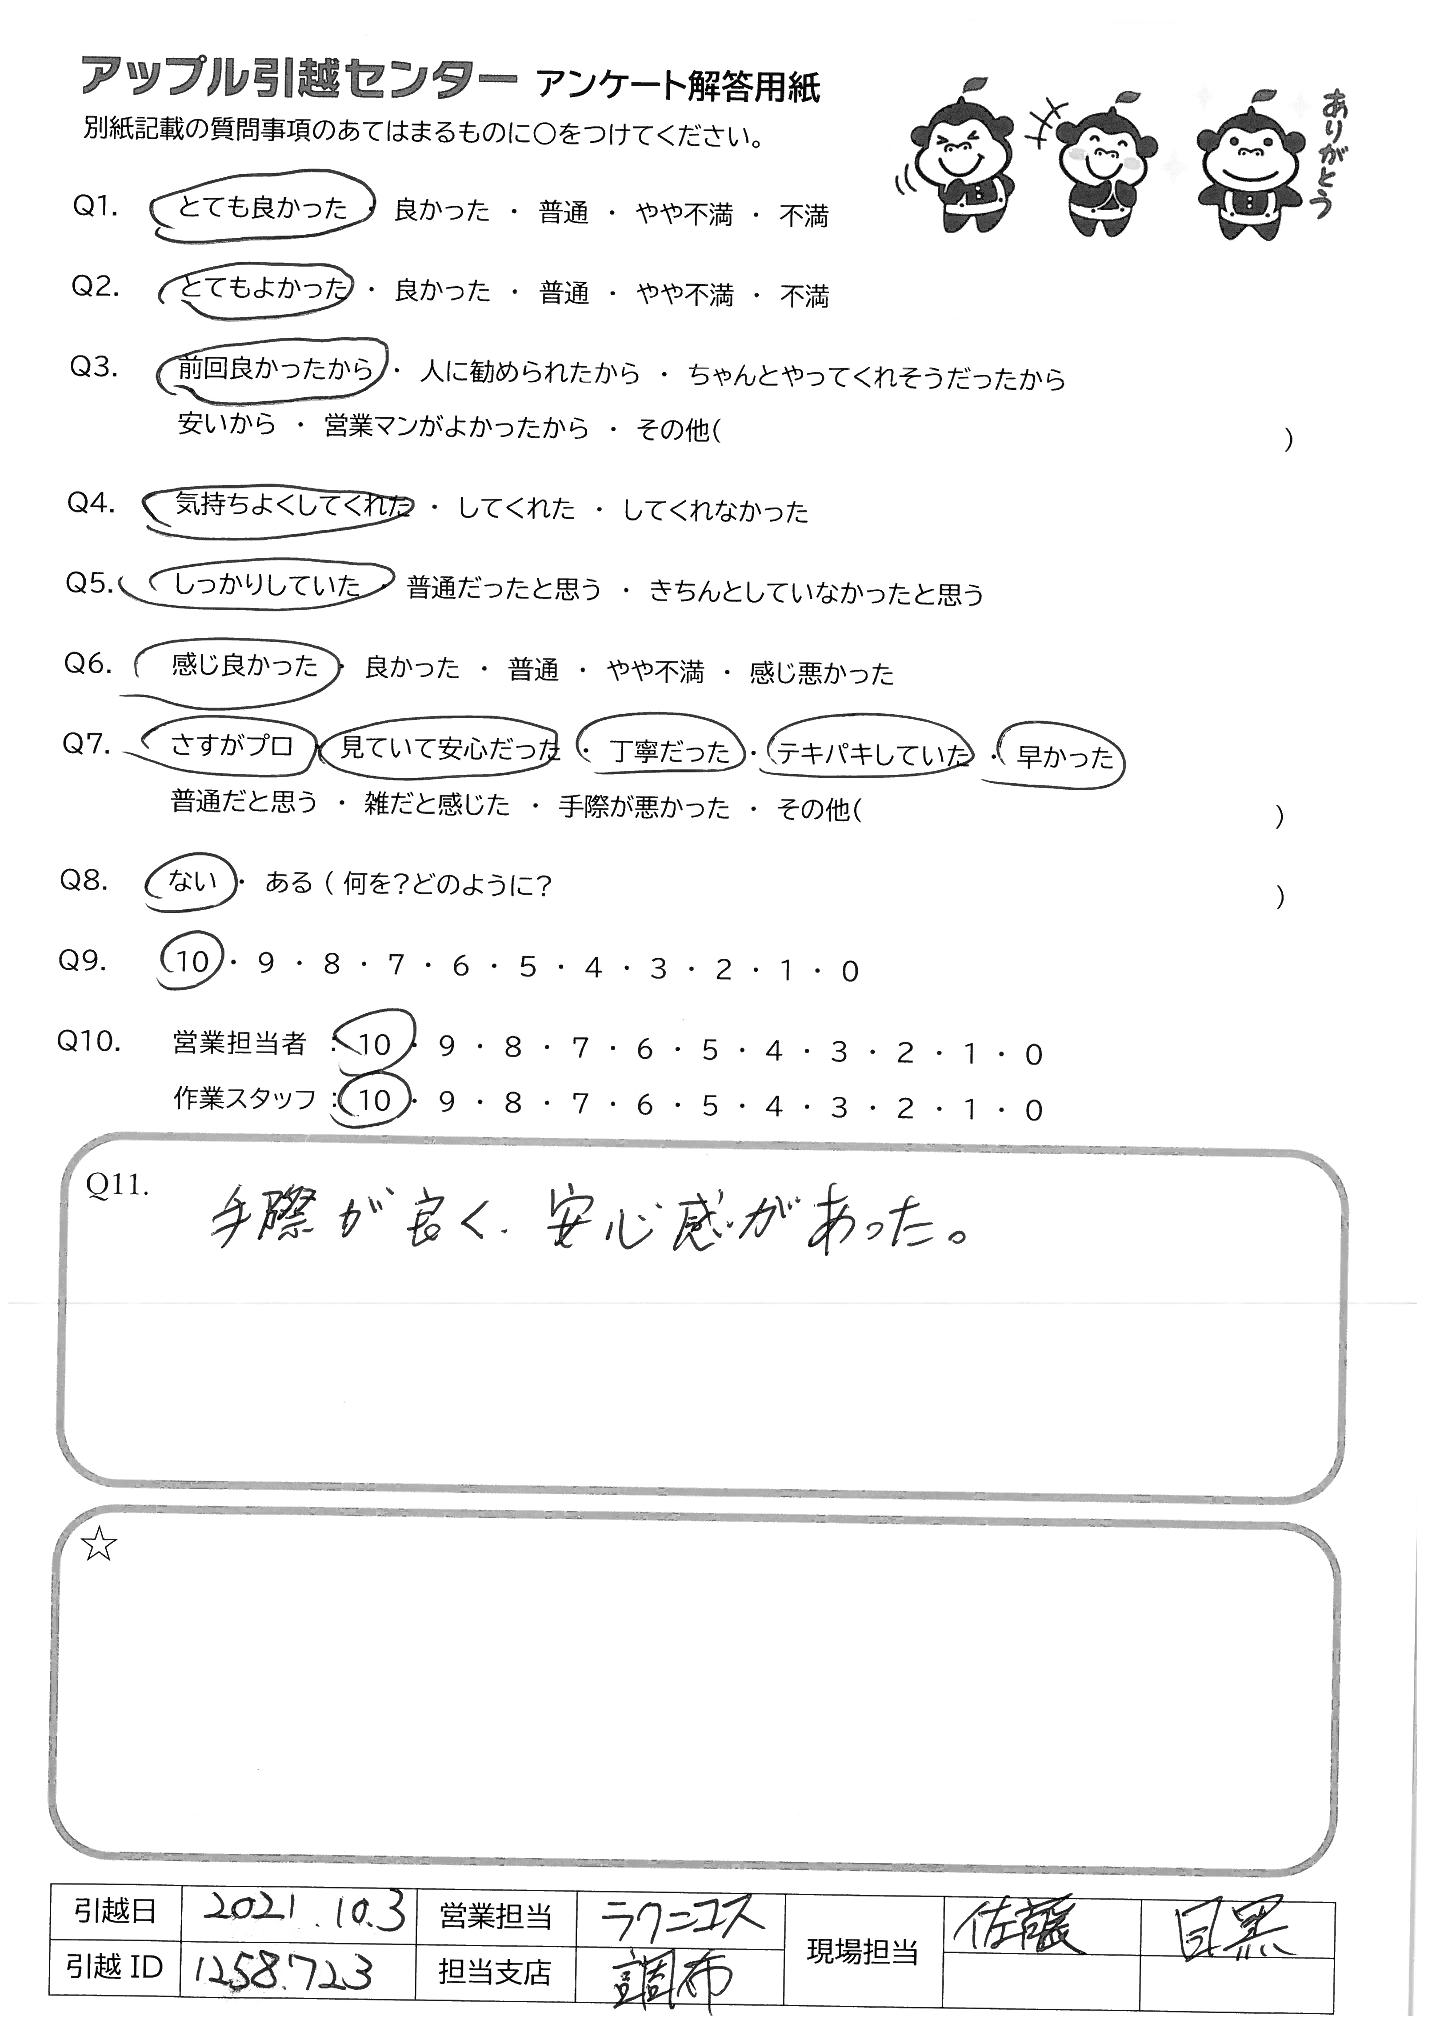 アップル引越センター アンケート解答用紙
ありがとう
別紙記載の質問事項のあてはまるものに〇をつけてください。
Q1. とても良かった ・ 良かった ・ 普通 ・ やや不満 ・ 不満
Q2. とてもよかった ・ 良かった ・ 普通 ・ やや不満 ・ 不満
Q3. 前回良かったから ・ 人に勧められたから ・ ちゃんとやってくれそうだったから
安いから ・ 営業マンがよかったから ・ その他( )
Q4. 気持ちよくしてくれた ・ してくれた ・ してくれなかった
Q5. しっかりしていた ・ 普通だったと思う ・ きちんとしていなかったと思う
Q6. 感じ良かった ・ 良かった ・ 普通 ・ やや不満 ・ 感じ悪かった
Q7. さすがプロ ・ 見ていて安心だった ・ 丁寧だった ・ テキパキしていた ・ 早かった
普通だと思う ・ 雑だと感じた ・ 手際が悪かった ・ その他( )
Q8. ない ・ ある ( 何を?どのように? )
Q9. 10 ・ 9 ・ 8 ・ 7 ・ 6 ・ 5 ・ 4 ・ 3 ・ 2 ・ 1 ・ 0
Q10. 営業担当者 : 10 ・ 9 ・ 8 ・ 7 ・ 6 ・ 5 ・ 4 ・ 3 ・ 2 ・ 1 ・ 0
作業スタッフ : 10 ・ 9 ・ 8 ・ 7 ・ 6 ・ 5 ・ 4 ・ 3 ・ 2 ・ 1 ・ 0
Q11. 手際が良く、安心感があった。
☆
引越日 2021.10.3 営業担当 ラクニコス 現場担当 佐藤 目黒
引越 ID 1258723 担当支店 調布